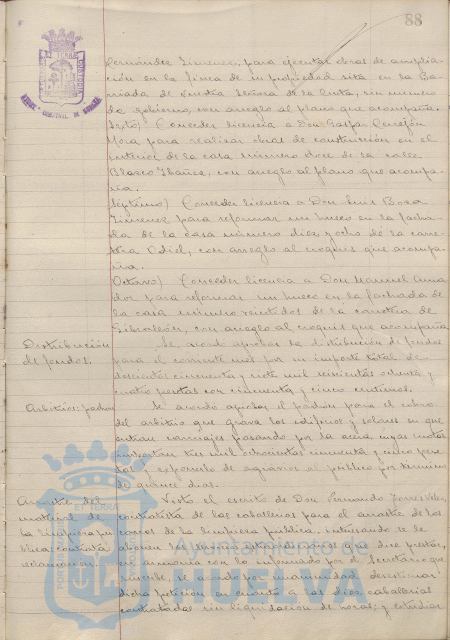 88
Fernández Jimenez, para ejecutar obras de amplia-
ción en la finca de su propiedad sita en la Ba-
rriada de Nuestra Señora de la Cinta, sin número
de gobierno, con arreglo al plano que acompaña.
Sexto) Conceder licencia a Don Gaspar
Mora para realizar obras de construcción en el
interior de la casa número doce de la calle
Blasco Ibáñez, con arreglo al plano que acompa-
ña.
Septimo) Conceder licencia a Don Luis Boza
Jimenez para reformar un hueco en la facha-
da de la casa número diez y ocho de la carre-
tera Odiel, con arreglo al croquis que acompa-
ña.
Octavo) Conceder licencia a Don Manuel Ama
dor para reformar un hueco en la fachada de
la casa número veintidos de la carretera de
Gibraleón, con arreglo al croquis que acompaña
Distribución
de fondos.
Se acordó aprobar la distribución de fondos
para el corriente mes por su importe total de
doscientos cincuenta y siete mil seiscientos ochenta y
cuatro pesetas con cincuenta y cinco centimos.
Arbitrios: padron
Se acordó aprobar el padrón para el cobro
del arbitrio que grava los edificios y solares en que
entran carruajes pasando por la acera, cuyas cuotas
importan tres mil ochocientas cincuenta y cinco pese-
tas y exponerlo de agravios al público por término
de quince dias.
Arrastre del
material de
la limpieza pú-
blica: contratista
reclamacion.
Visto el escrito de Don Fernando Torres
contratista de las caballerias para el arrastre de los
carros de la limpieza pública, interesando se le
abonen las horas extraordinarias que dice prestar,
en armonía con lo informado por el Secretario que
suscribe, se acordó por unanimidad desestimar
dicha petición en cuanto a las diez caballerias
contratadas sin liquidacion de horas; y estudiar
Ayuntamiento de
HUELVA